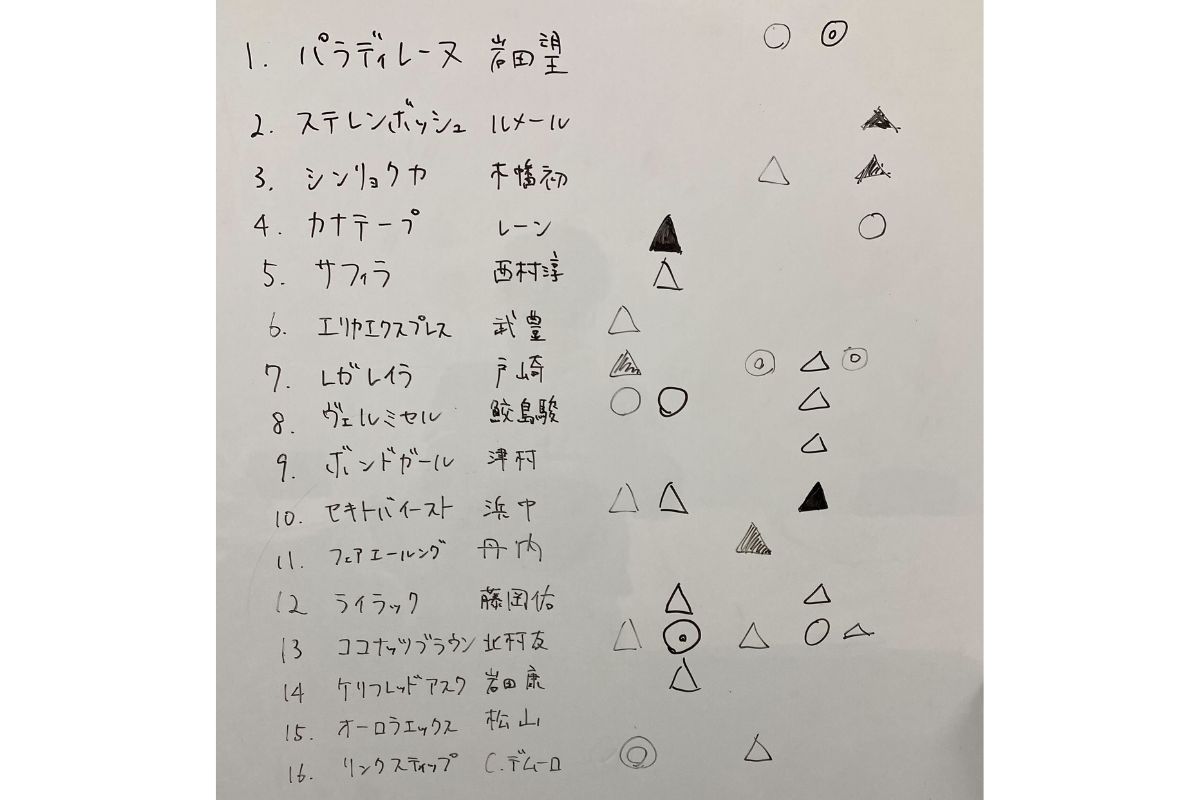 1. パラディレーヌ 岩田望 ○ ◎
2. ステレンボッシュ ルメール ▲
3. シンリョクカ 木幡初 △ ▲
4. カナテープ レーン ▲ ○
5. サフィラ 西村淳 △
6. エリカエクスプレス 武豊 △
7. レガレイラ 戸崎 ▲ ◎ △ ◎
8. ヴェルミセル 鮫島駿 ○ ○ △
9. ボンドガール 津村 △
10. セキトバイースト 浜中 △ △ ▲
11. フェアエールング 丹内 ▲
12 ライラック 藤岡佑 △ △
13 ココナッツブラウン 北村友 △ ◎ △ ○ △
14 ケリフレッドアスク 岩田康 △
15. オーロラエックス 松山
16. リンクスティップ C.デムーロ ◎ △